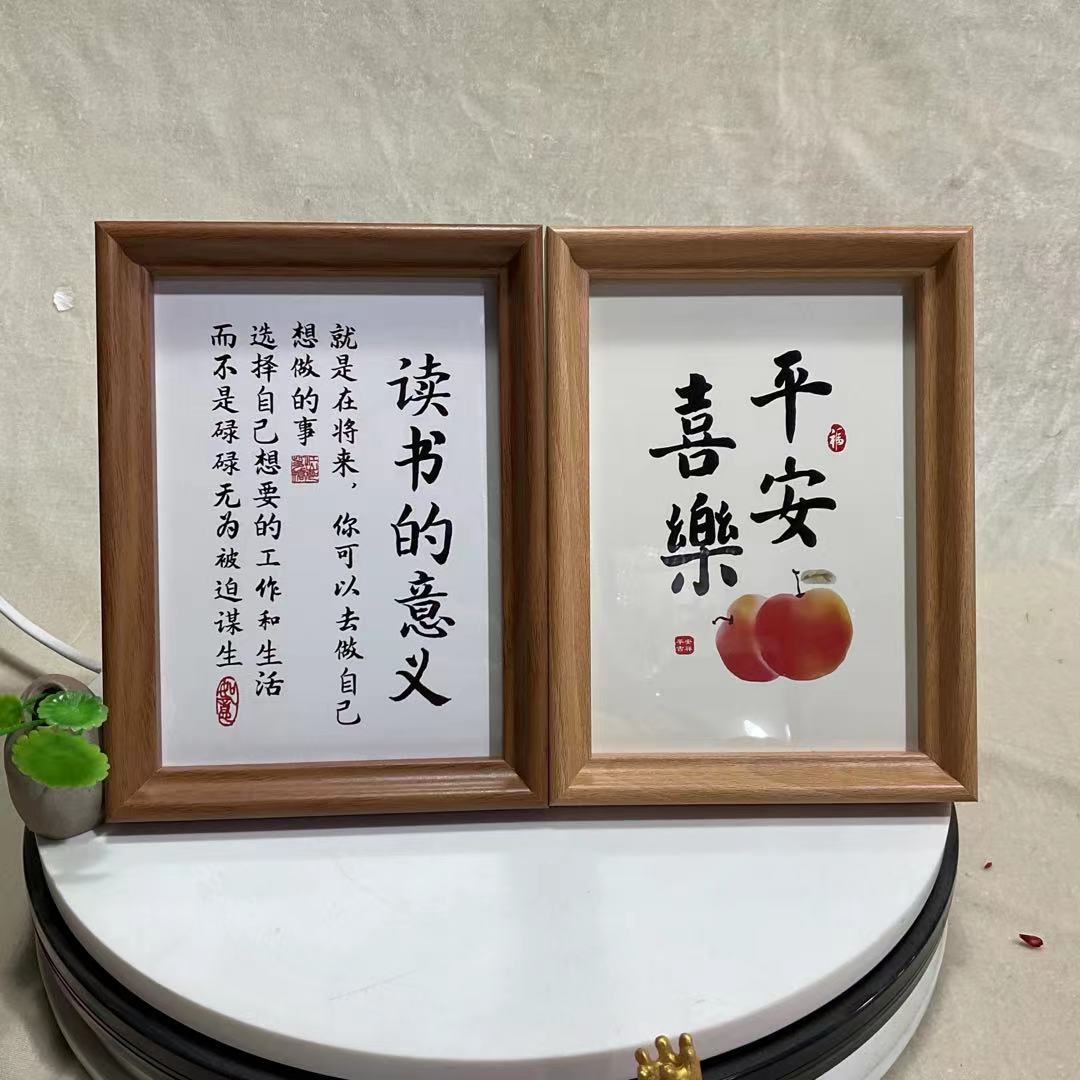 读书的意义
就是在将来，你可以去做自己
想做的事
选择自己想要的工作和生活
而不是碌碌无为被迫谋生
如意
平安
福
喜樂
平安
吉祥